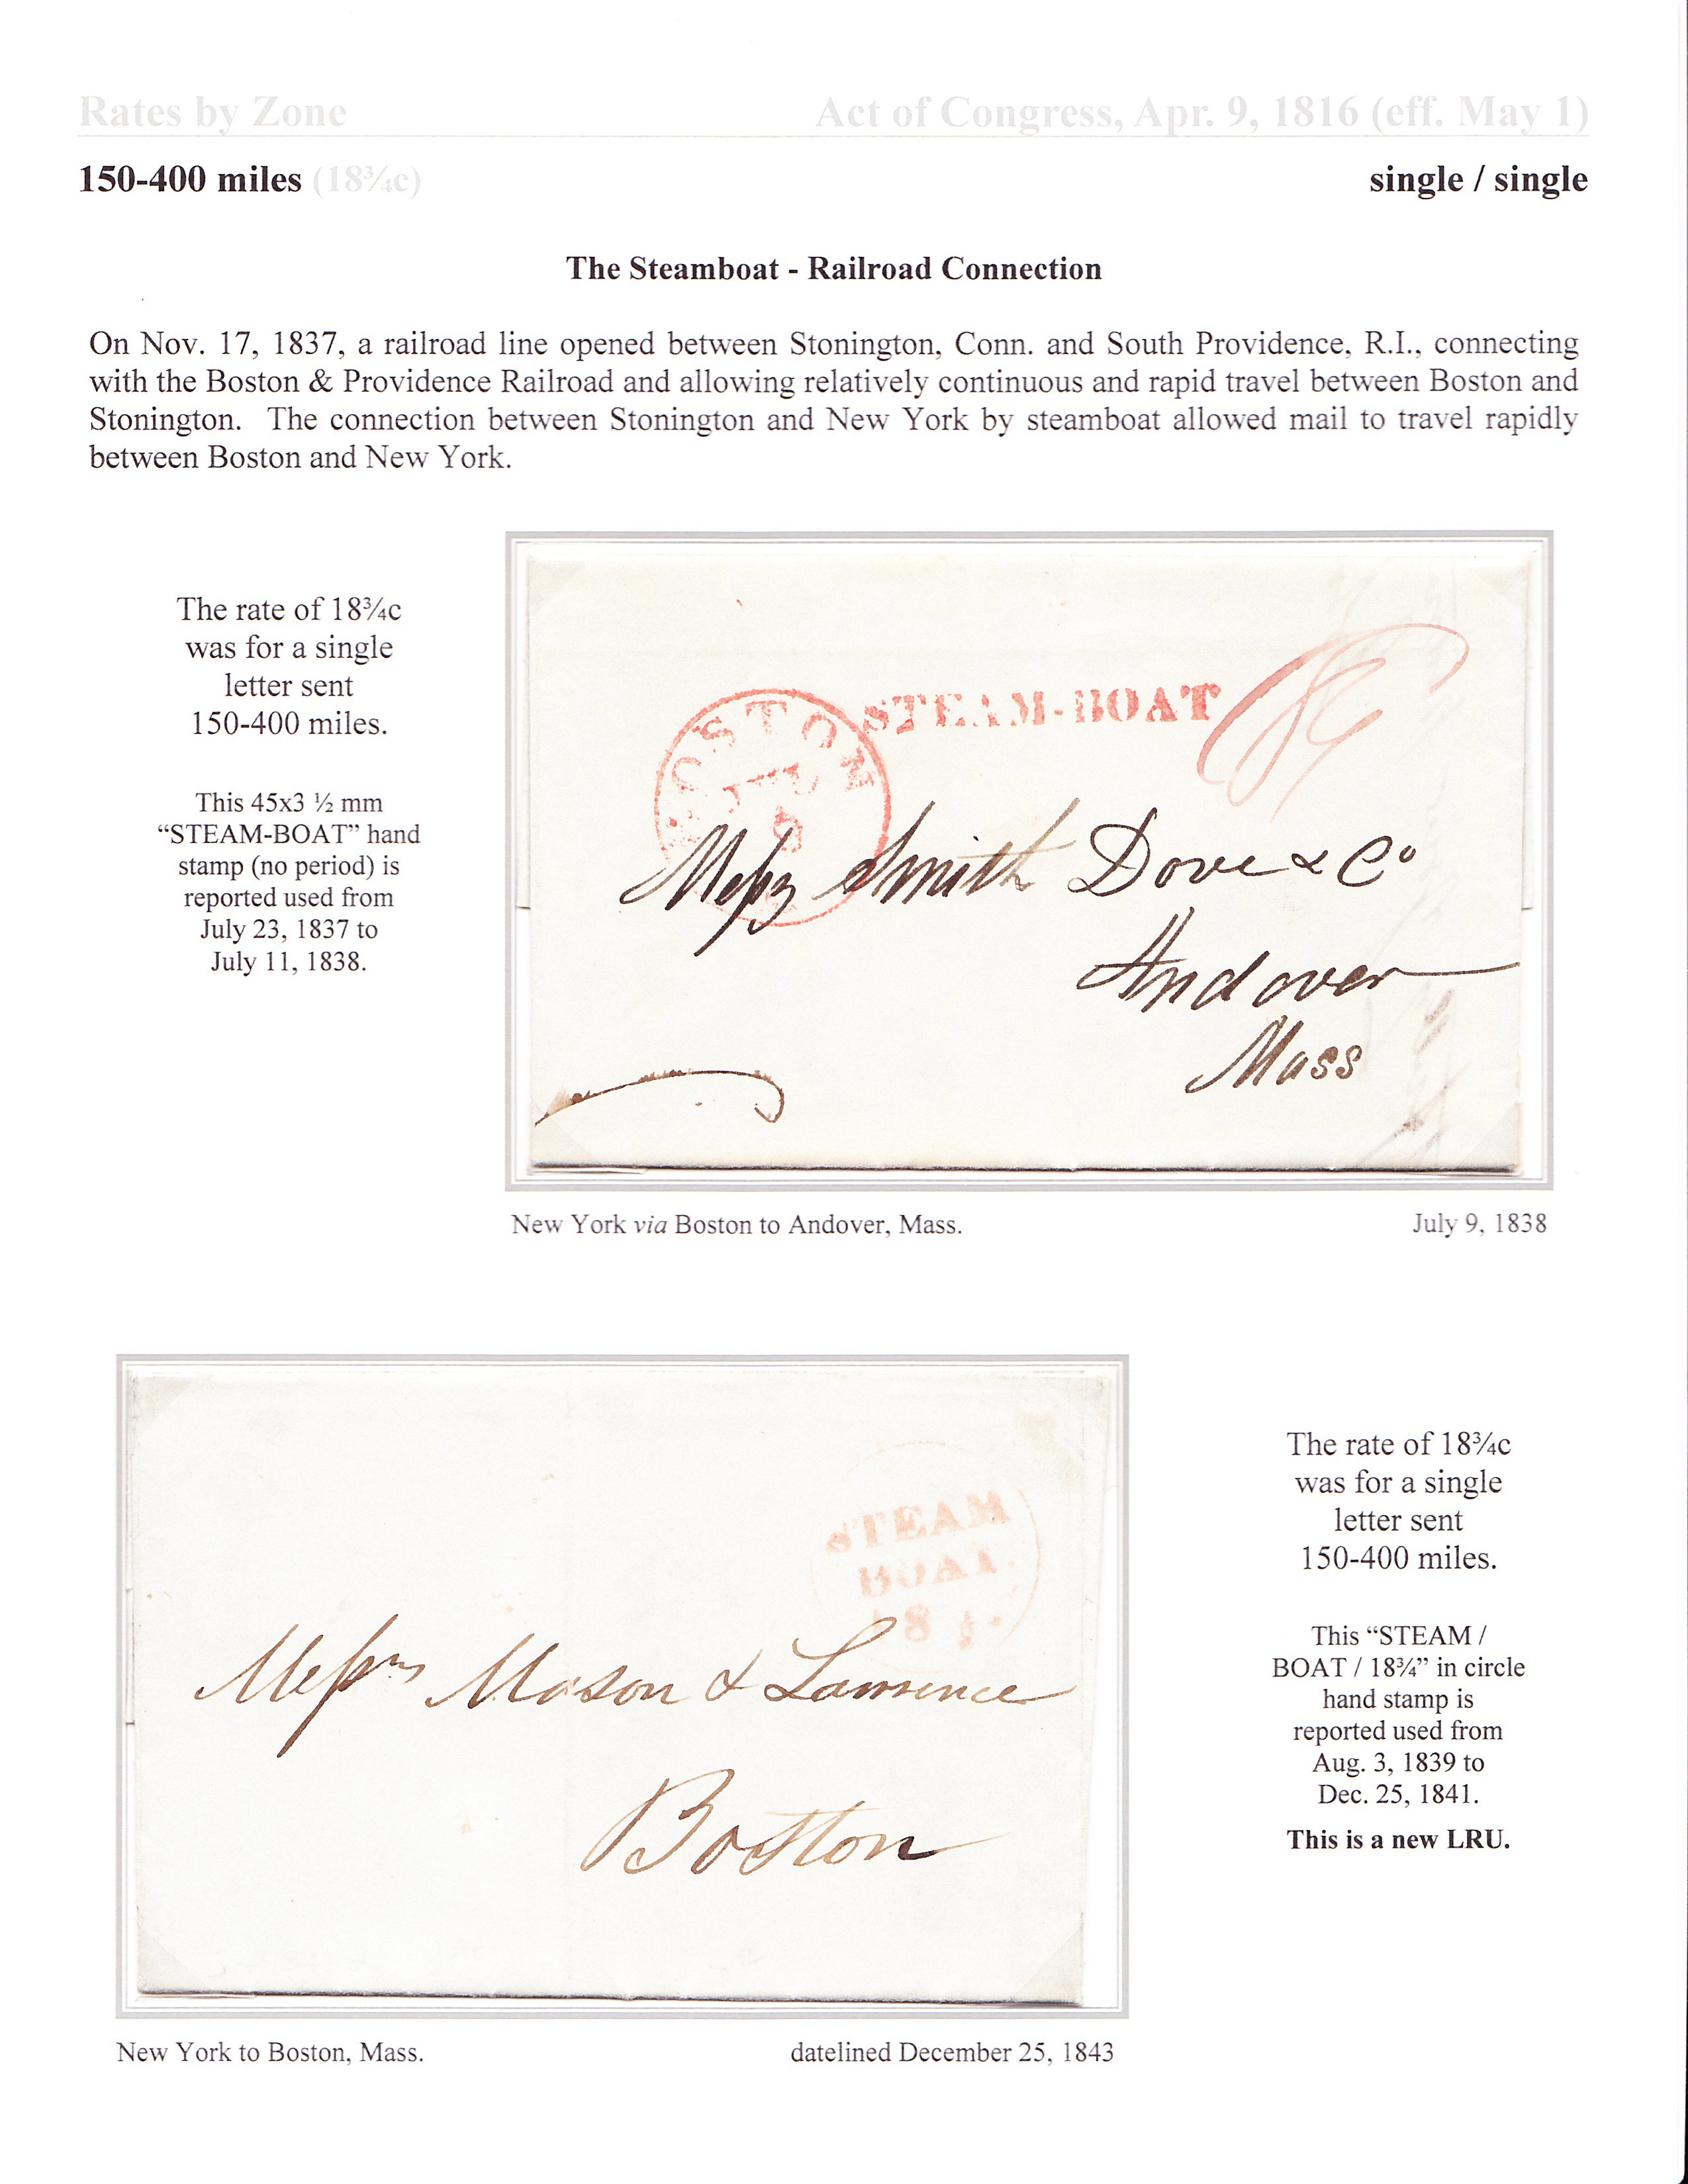 Rates by Zone Act of Congress, Apr. 9, 1816 (eff. May 1)
150-400 miles (18¾c) single / single
The Steamboat - Railroad Connection
On Nov. 17, 1837, a railroad line opened between Stonington, Conn. and South Providence, R.I., connecting
with the Boston & Providence Railroad and allowing relatively continuous and rapid travel between Boston and
Stonington. The connection between Stonington and New York by steamboat allowed mail to travel rapidly
between Boston and New York.
The rate of 18¾c
was for a single
letter sent
150-400 miles.
This 45x3 ½ mm
“STEAM-BOAT” hand
stamp (no period) is
reported used from
July 23, 1837 to
July 11, 1838.
BOSTON
JUL
9
STEAM-BOAT
Messrs Smith Dove & Co
Andover
Mass
New York via Boston to Andover, Mass. July 9, 1838
STEAM
BOAT.
18¾
Messrs Mason & Lawrence
Boston
The rate of 18¾c
was for a single
letter sent
150-400 miles.
This “STEAM /
BOAT / 18¾” in circle
hand stamp is
reported used from
Aug. 3, 1839 to
Dec. 25, 1841.
This is a new LRU.
New York to Boston, Mass. datelined December 25, 1843